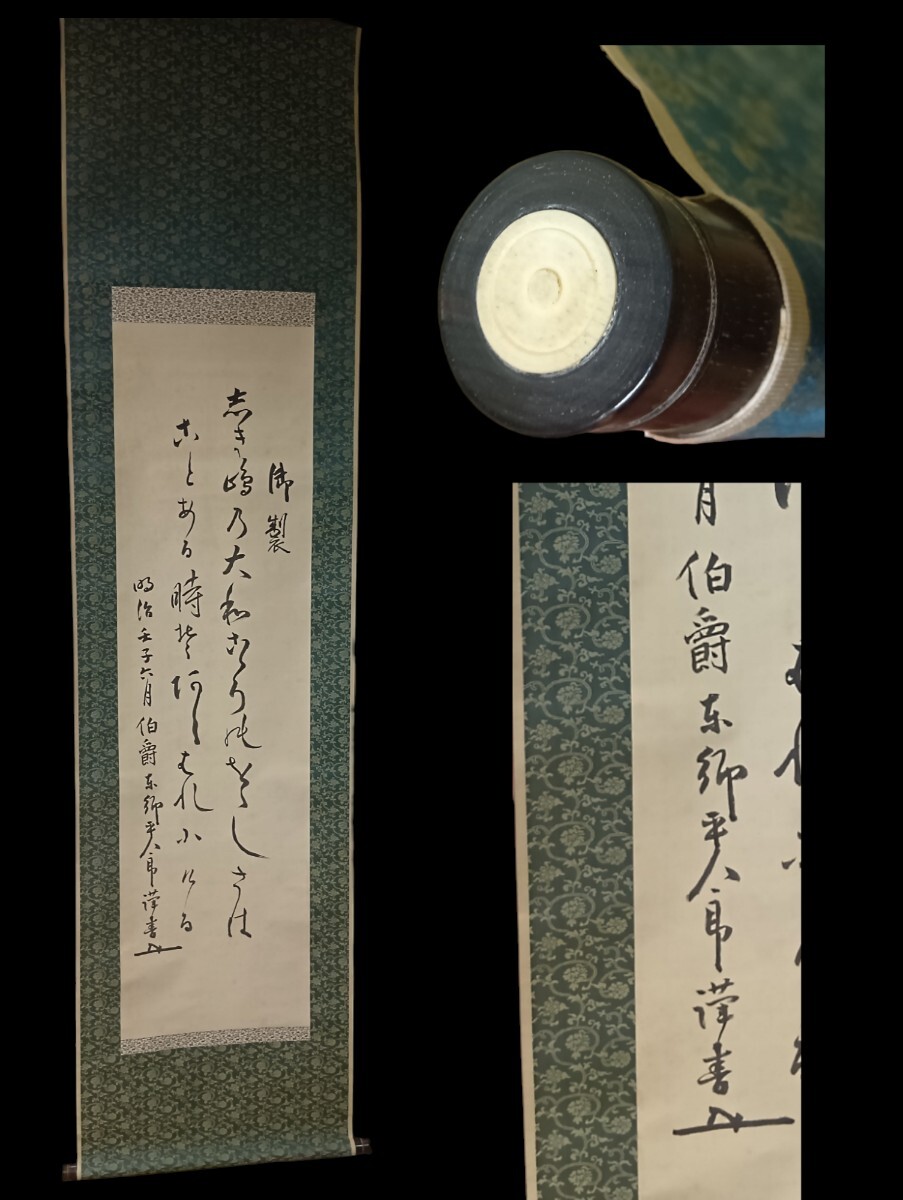 御製
志き嶋乃大和こゝろ能をゝしさは
ことある時曽阿らはれ尓ける
明治壬子六月 伯爵東郷平八郎謹書
月 伯爵東郷平八郎謹書